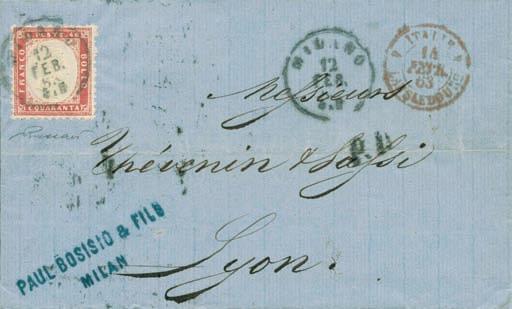 C. POSTE 40
FRANCO
BOLLO
C. QUARANTA
MILANO
12
FEB.
MILANO
12
FEB.
ITALIE
14
FEVR.
63
Messieurs
P.D.
Thévenin &
Lyon.
PAUL BOSISIO & FILS
MILAN